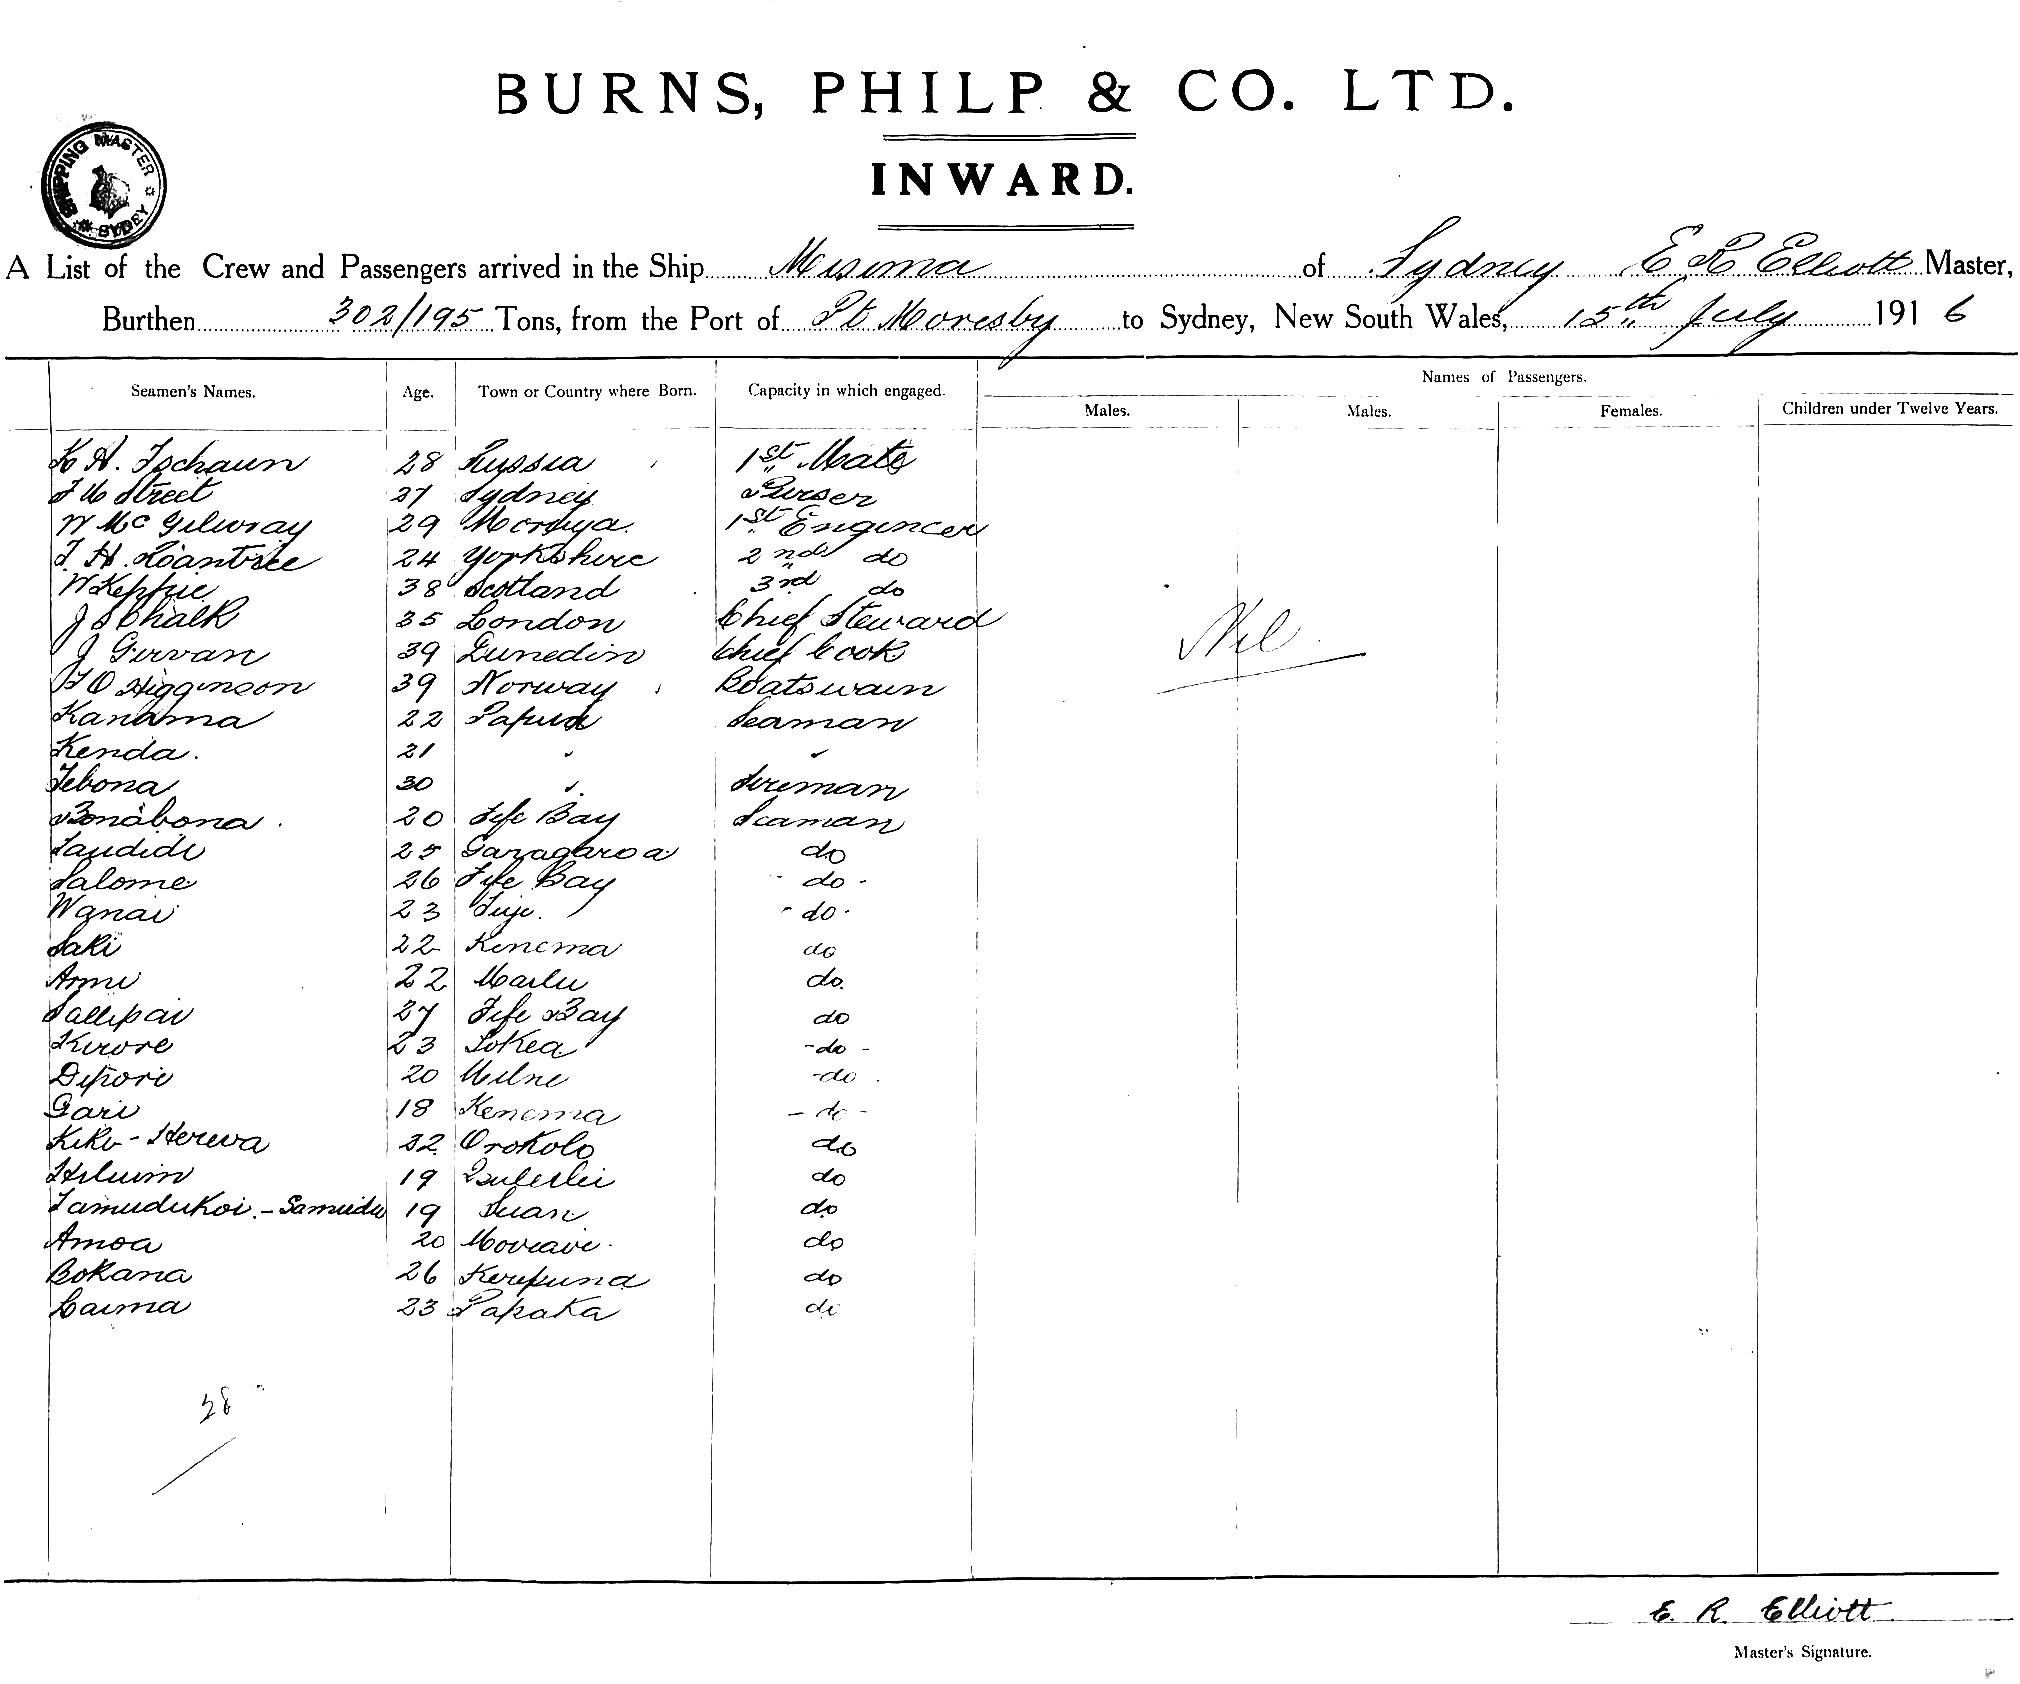 BURNS, PHILP & CO. LTD.
INWARD.
SHIPPING MASTER SYDNEY
A List of the Crew and Passengers arrived in the Ship Misima of Sydney E R Elliott Master,
Burthen 302/195 Tons, from the Port of Pt Moresby to Sydney, New South Wales, 15th July 1916
Names of Passengers.
Seamen's Names. Age. Town or Country where Born. Capacity in which engaged. Males. Males. Females. Children under Twelve Years.
K H. Tschaun 28 Russia 1st Mate
Street 27 Sydney Purser
W McGilvray 29 Moruya 1st Engineer
T. H. Roantree 24 Yorkshire 2nd do
W Keppie 38 Scotland 3rd do
J S Chalk 35 London Chief Steward
J Girvan 39 Dunedin Chief Cook
Nil
O Higginson 39 Norway Boatswain
Kanama 22 Papua Seaman
Kenda. 21 " "
Tebona 30 " Fireman
Bonabona. 20 Fife Bay Seaman
Taudidi 25 Garagaroa do
Salome 26 Fife Bay - do -
Wanai 23 Fiji. - do -
Saki 22 Kenema do
Armi 22 Mailu do.
Sallipai 27 Fife Bay do
Kivore 23 Lokea - do -
Dipori 20 Milne - do.
Gari 18 Kenema - do -
Kiki - Hereva 22 Orokolo do
19 do
Tamudukoi. - Samudu 19 Suan do
Amoa 20 Moviavi. do
Bokana 26 Kerepuna do
Laima 23 Papaka do
28
E. R. Elliott
Master's Signature.